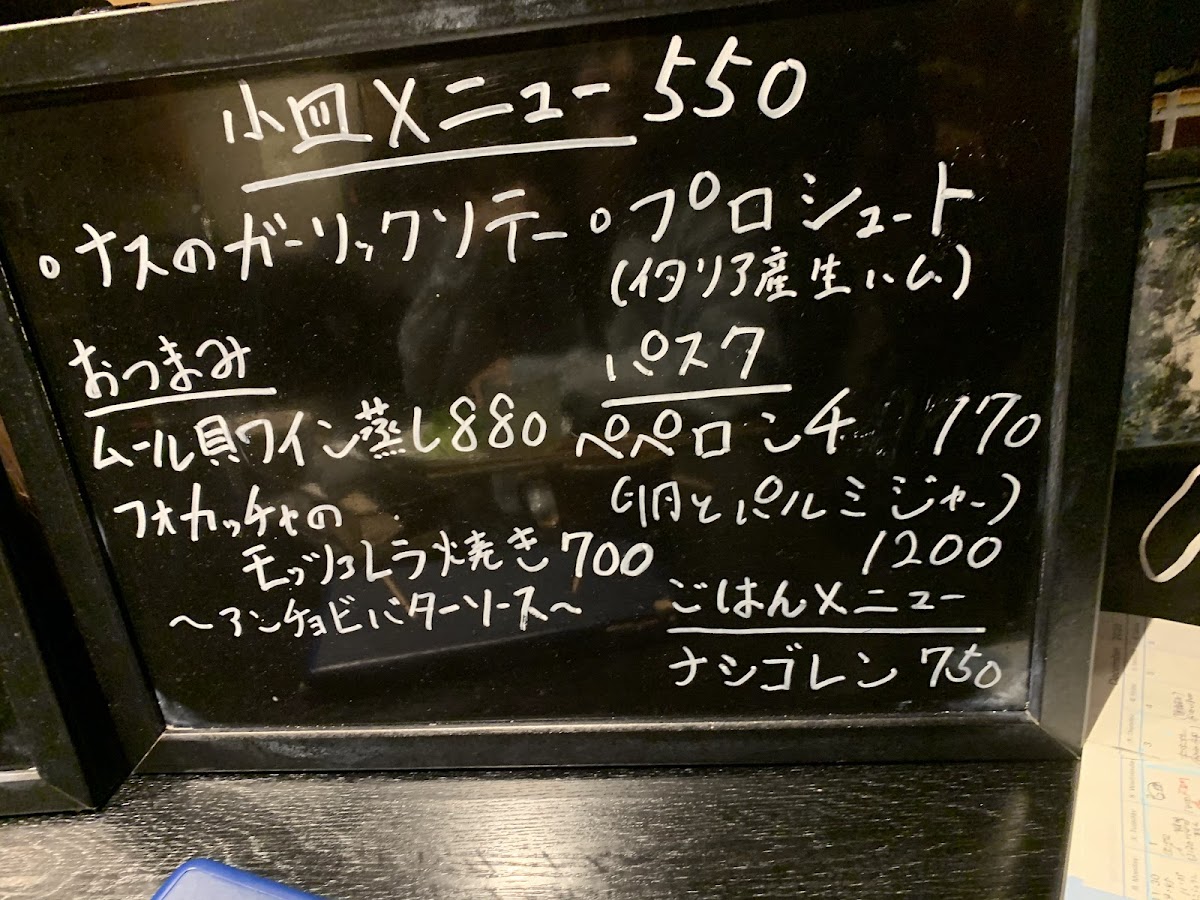 小皿メニュー 550
。ナスのガーリックソテー
。プロシュート
(イタリア産生ハム)
おつまみ
ムール貝ワイン蒸し880
フォカッチャの
モッツョレラ焼き700
〜アンチョビバターソース〜
パスク
ペペロンチ 170
(卵とパルミジャー)
1200
ごはんメニュー
ナシゴレン 750